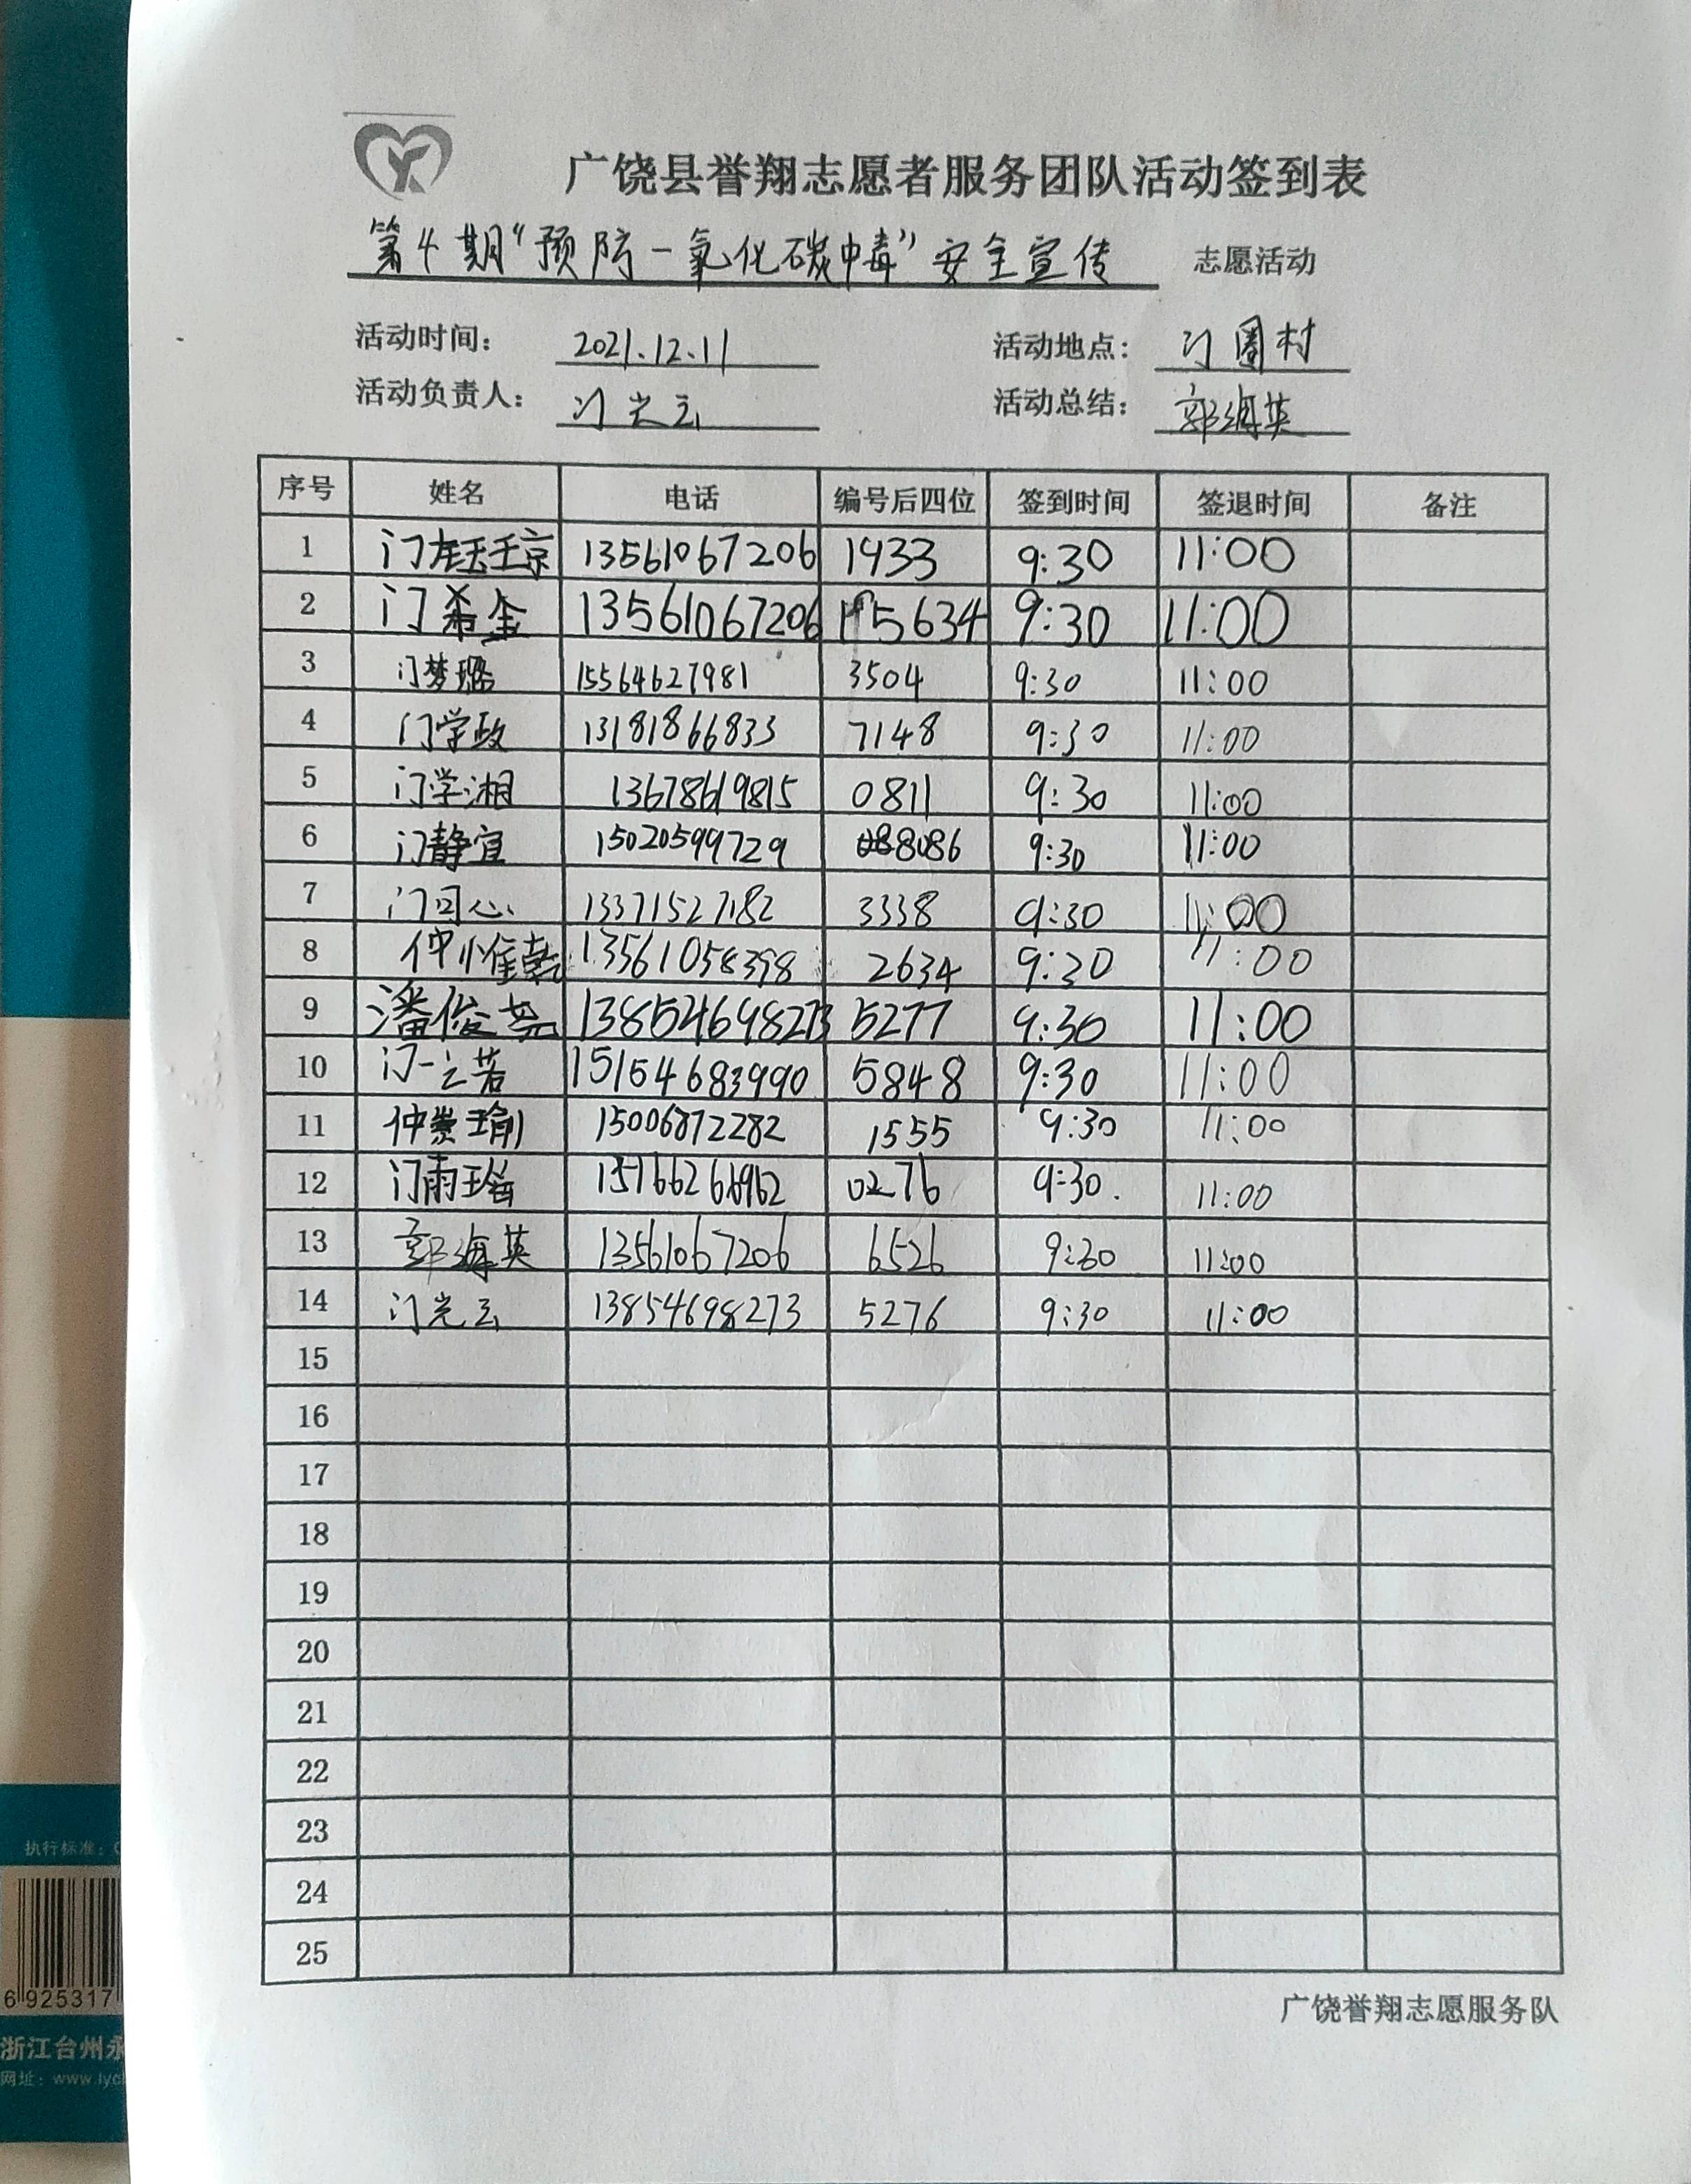 广饶县誉翔志愿者服务团队活动签到表
第4期“预防一氧化碳中毒”安全宣传 志愿活动
活动时间： 2021.12.11 活动地点： 门圈村
活动负责人： 门光云 活动总结： 郭海英
序号 姓名 电话 编号后四位 签到时间 签退时间 备注
1 门钰琼 13561067206 1433 9:30 11:00
2 门希金 13561067206 5634 9:30 11:00
3 门梦璐 15564627981 3504 9:30 11:00
4 门学政 13181866833 7148 9:30 11:00
5 门学湘 13678619815 0811 9:30 11:00
6 门静宜 15020599729 8086 9:30 11:00
7 门同心 13371527182 3338 9:30 11:00
8 仲惟喆 13561058398 2634 9:30 11:00
9 潘俊尧 13854698273 5277 9:30 11:00
10 门一之若 15154683990 5848 9:30 11:00
11 仲崇瑜 15006872282 1555 9:30 11:00
12 门雨瑶 0276 9:30. 11:00
13 郭海英 13561067206 6526 9:30 11:00
14 门光云 13854698273 5276 9:30 11:00
15
16
17
18
19
20
21
22
23
24
25
广饶誉翔志愿服务队
执行标准：
6 925317
浙江台州永
网址：www.lyc